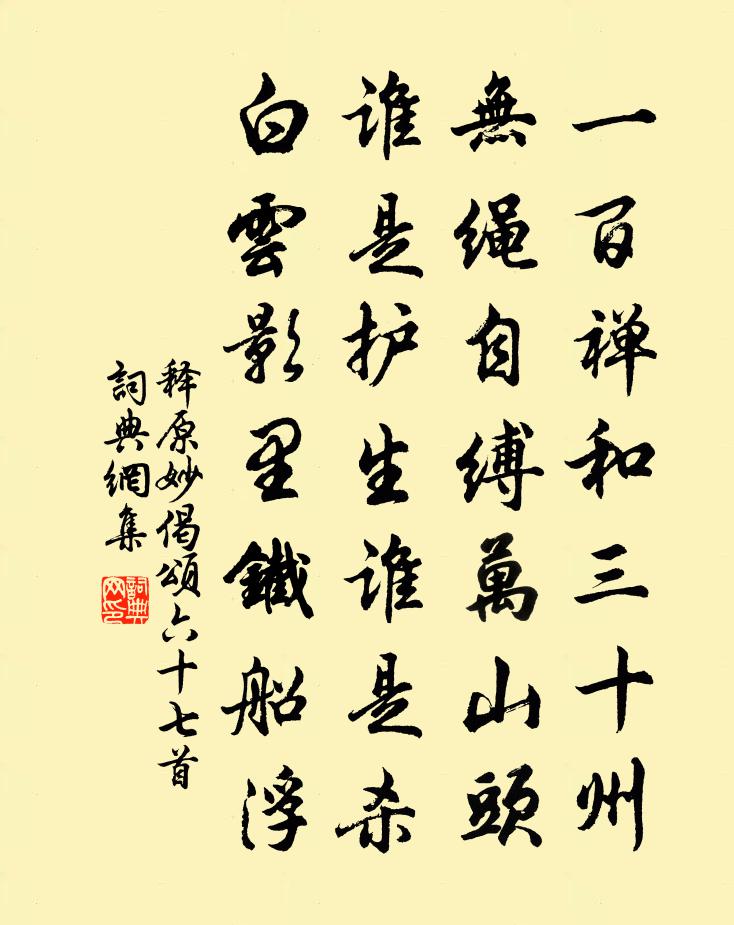 一百禅和三十州
無绳自缚萬山頭
谁是护生谁是杀
白雲影里鐵船浮
释原妙偈颂六十七首
詞典網集
詞典網印